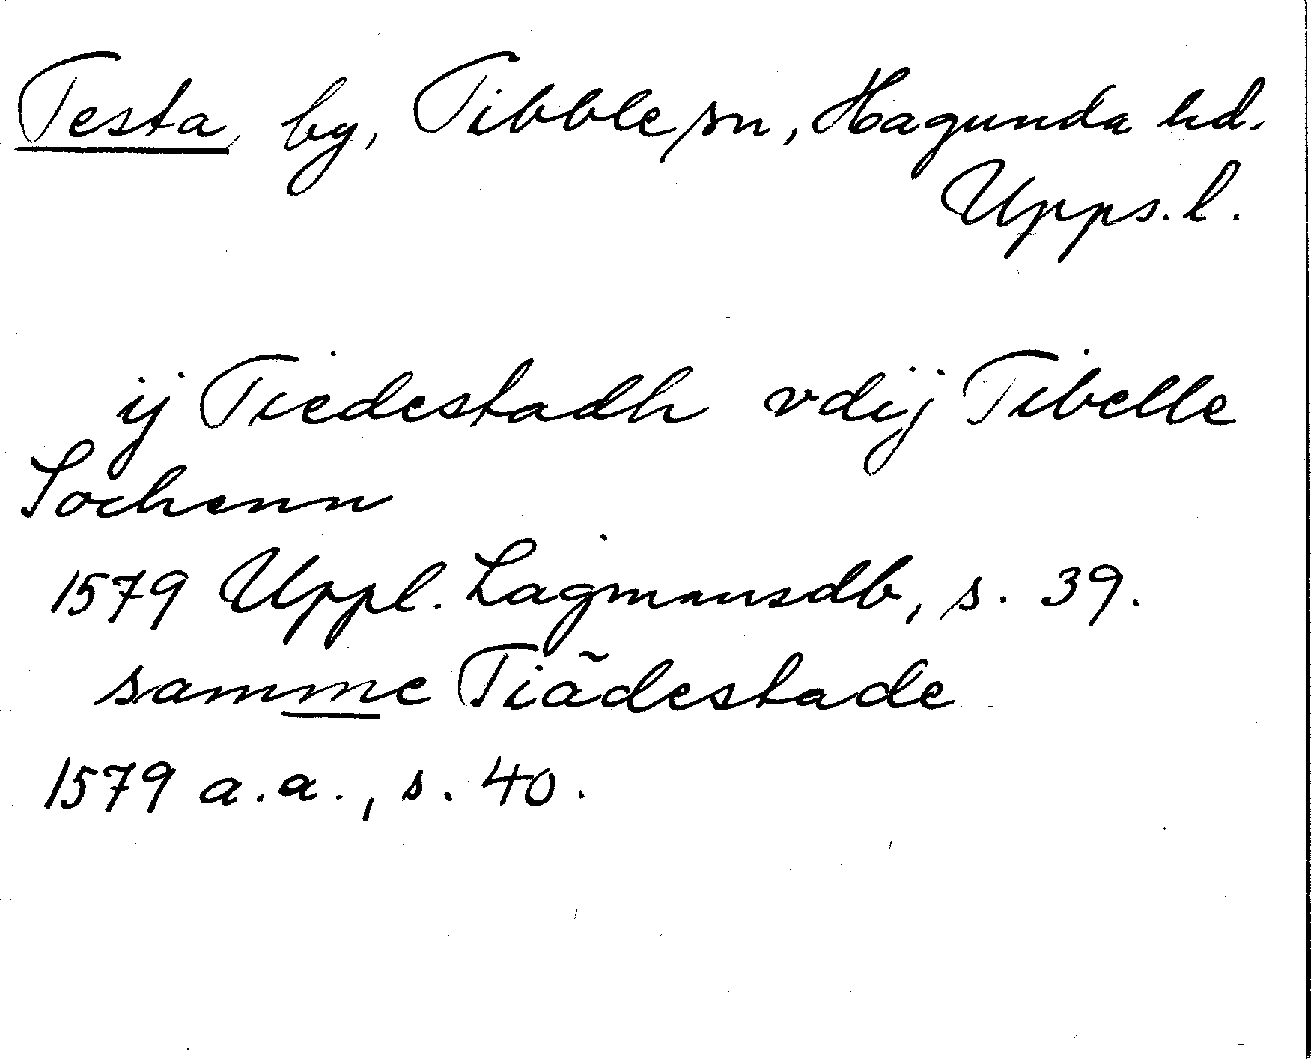 Testa by, Tibble sn, Hagunda hd.
Upps. l.
ij Tiedestadh vdij Tibelle
Sochenn
1579 Uppl. Lagmansdb, s. 39.
samme Tiãdestade
1579 a.a., s. 40.